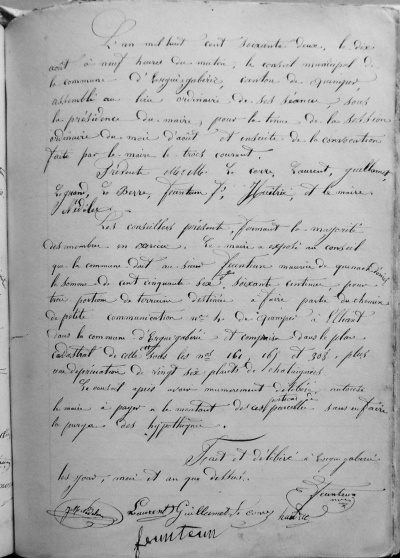 L'an mil huit cent soixante deux, le dix
août à neuf heures du matin, le conseil municipal de
la commune d'Ergué-gabéric, canton de quimper,
assemblé au lieu ordinaire de ses séances, sous
la présidence du maire, pour la tenue de la session
ordinaire du mois d'août et ensuite de la convocation
faite par le maire le trois courant.
Présents MM. Le Corre, Laurent, guillermet,
Le grand, Le Berre, feunteun, et le maire
Nédélec
Les conseillers présents formant la majorité
des membres en exercice. Le maire a exposé au conseil
que la commune doit au sieur feunteun maurice de
la somme de cent cinquante six, soixante centimes, pour
trois portions de terrain destinées à faire partie du chemin
de petite communication n° 4 de quimper à Elliant
dans la commune d'Ergué gabéric et comprises dans le plan
cadastral de celle sous les nos 161, 165 et 308, plus
une dépréciation de vingt six plants de chataigniers
Le conseil après avoir mûrement délibéré autorise
le maire à payer le montant de ces parcelles sans en faire
la purge des hypothèques.
Fait et délibéré à Ergué gabéric
les jour, mois et an que dessus.
feunteun
Laurent Guillermet Le Corre
feunteun